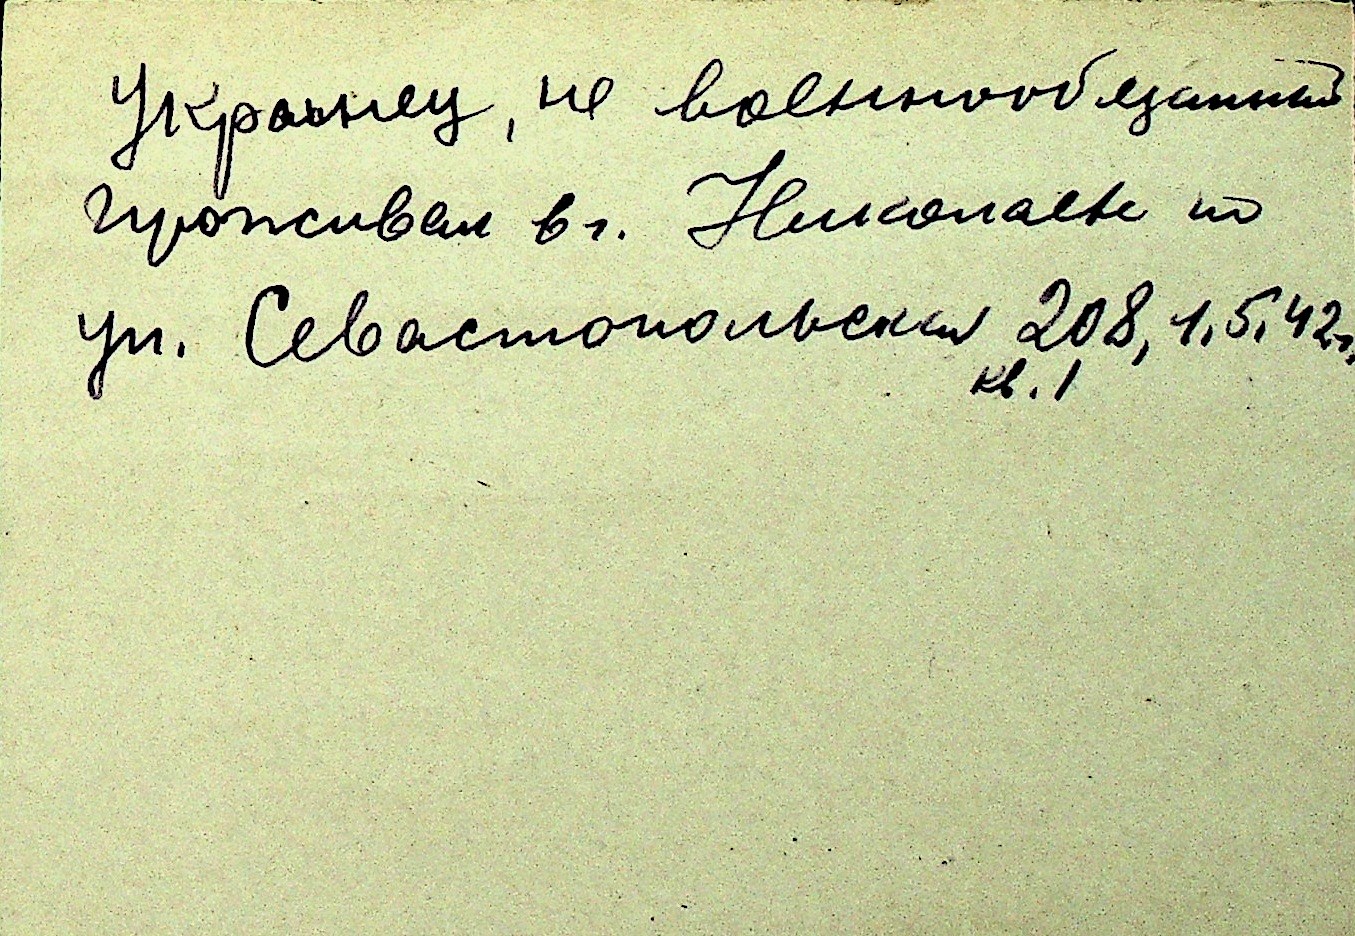 Украинец, не военнообязанный
проживал в г. Николаеве по
ул. Севастопольская 208, 1.5.42г.,
кв. 1